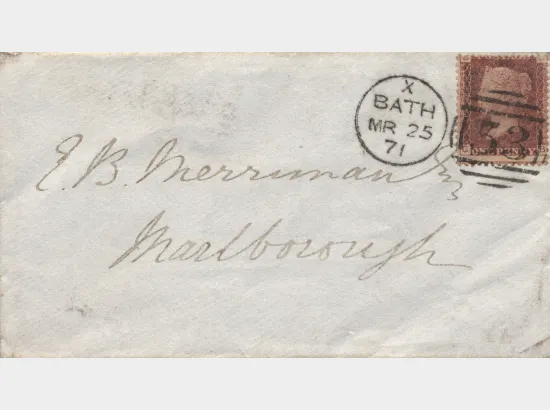 X
BATH
MR 25
71
53
ONE PENNY
E. B. Merriman Esq
Marlborough